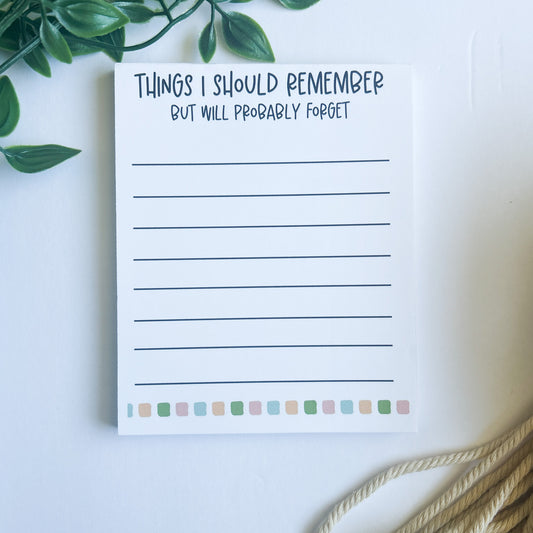 THINGS I SHOULD REMEMBER
BUT WILL PROBABLY FORGET